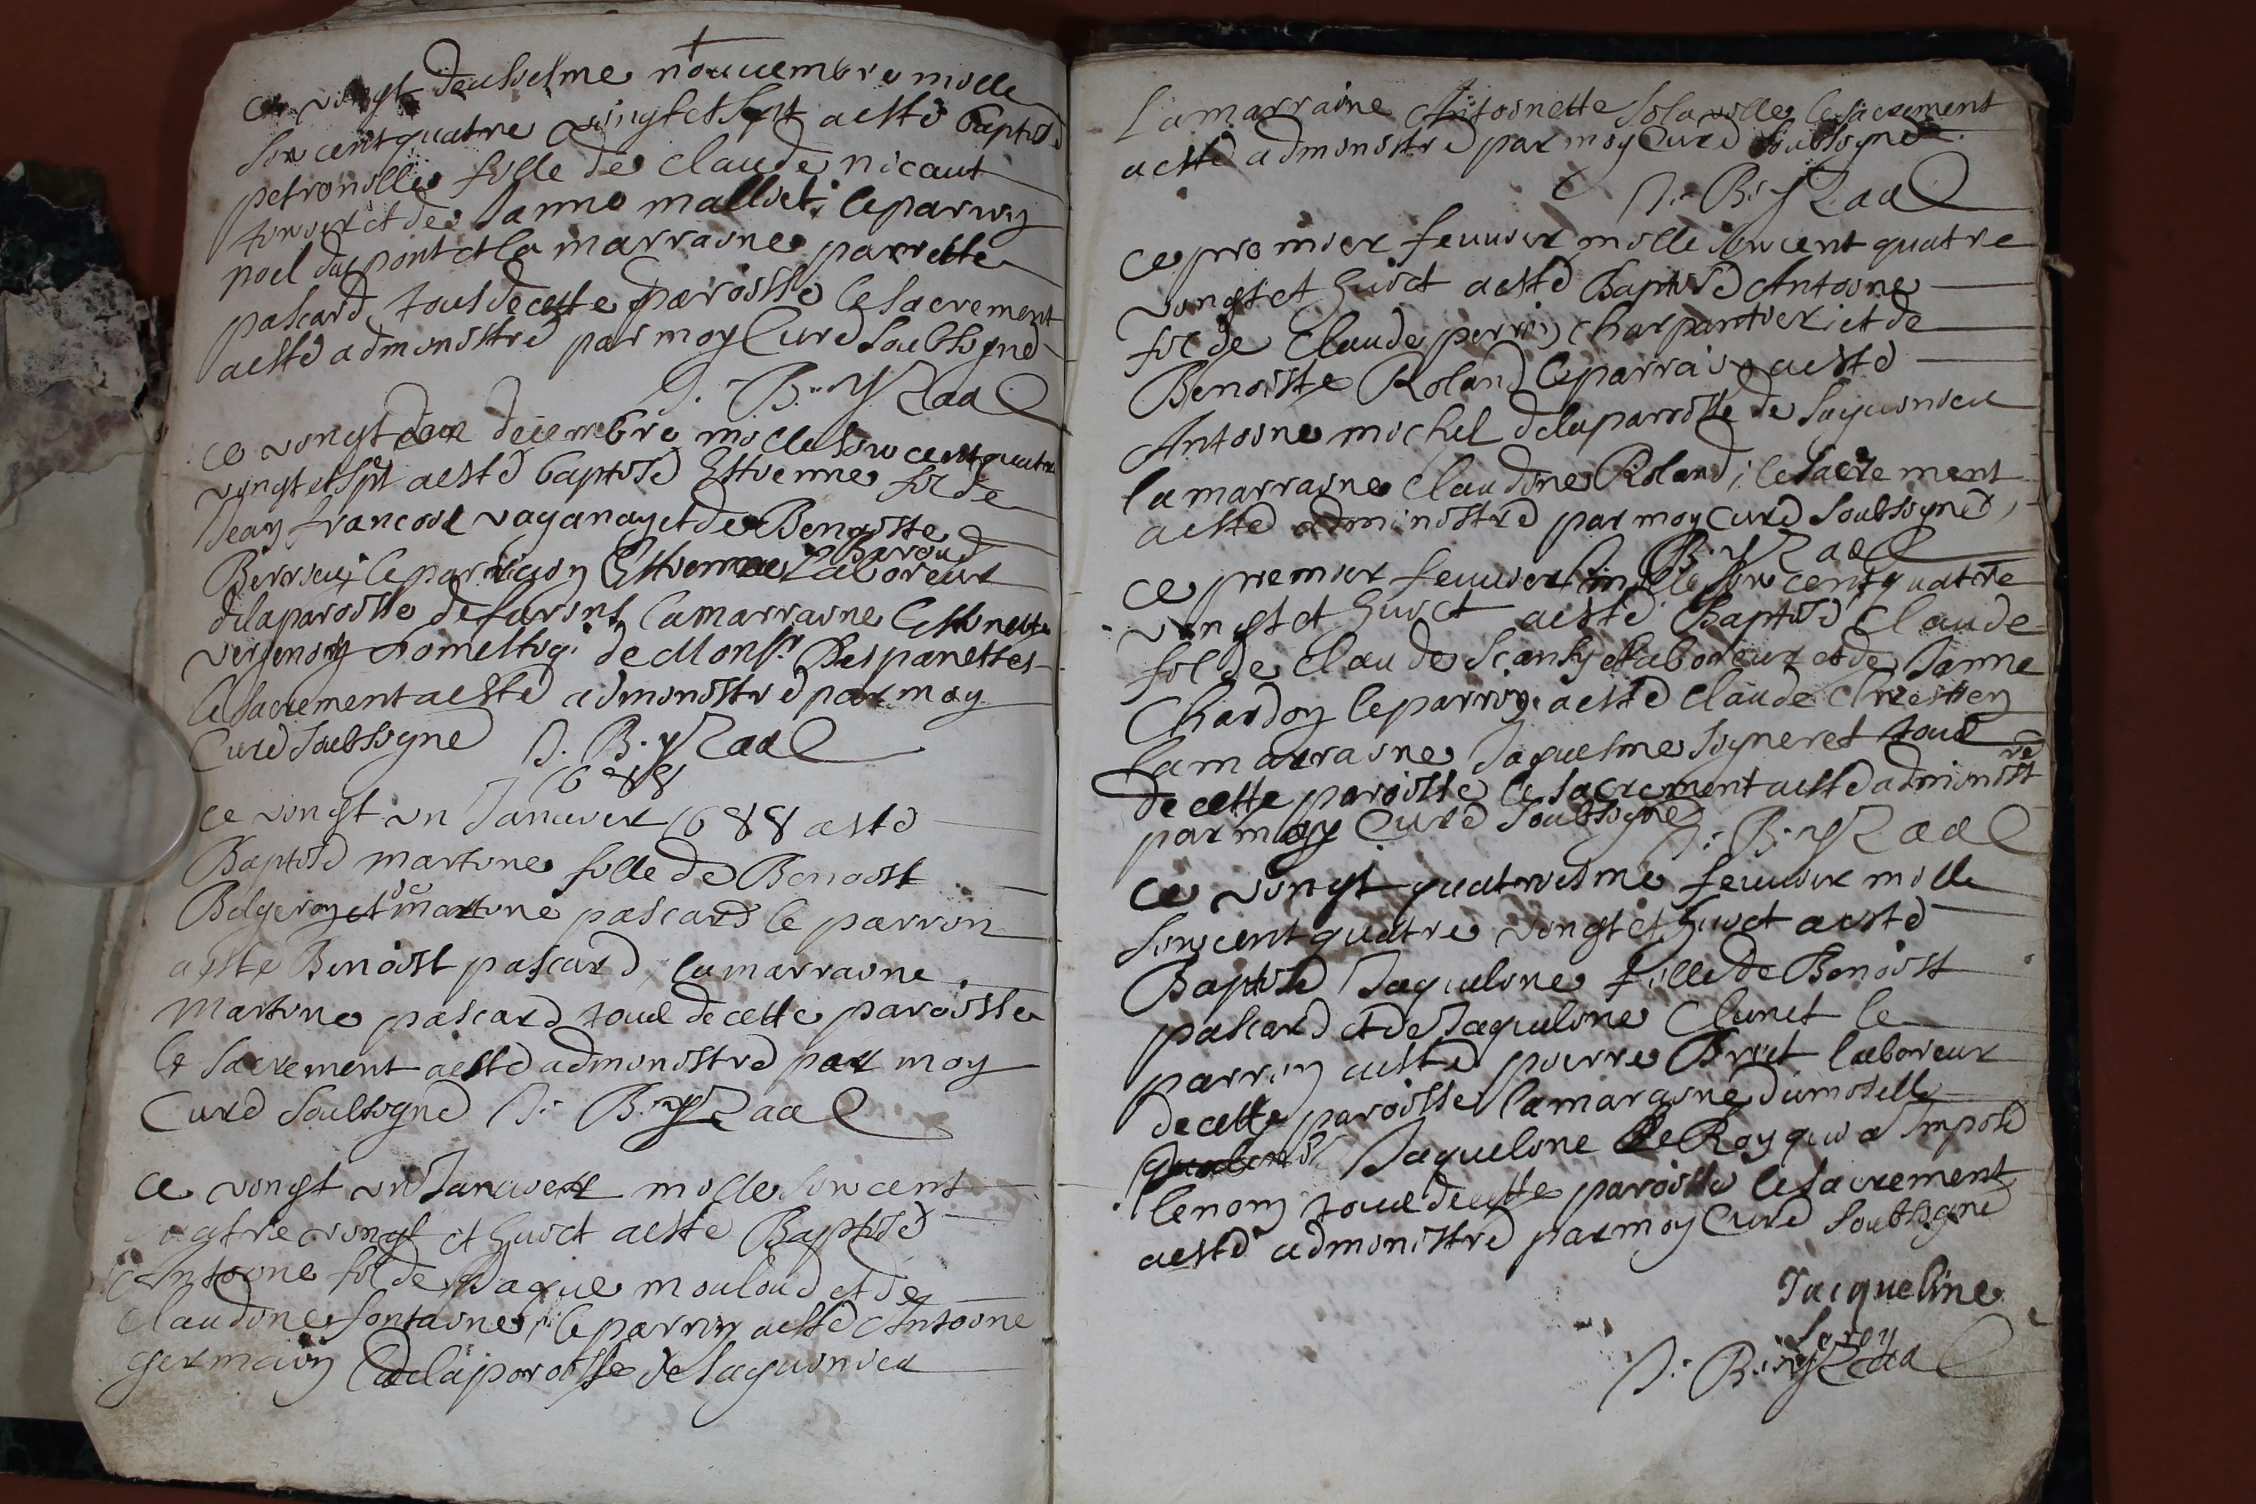 ce vingt deusiesme nouuembre mille
six cent quatre vingt et sept a esté baptisé
petronille fille de claude nicaut
et de Janne malliet le parrin
noel du pont et la marraine parnette
pascard tous de ceste paroisse le sacrement
a esté administré par moy Curé soubsigné
ce vingt deux decembre mille six cent quatre
vingt et sept a esté baptisé Estienne fil de
Jean francois vaganay et de Benoiste
Berrieu le parrin Estienne laboreur
de la paroisse de la marraine
domestiq. de Monsr. Despanesses
le sacrement a esté administré par moy
Curé soubsigné
1688
ce vingt un Januier 1688 a esté
Baptisé martine fille de Benoist
et de martine pascard le parrin
a esté Benoist pascard la marraine
martine pascard tous de cette paroisse
le sacrement a esté administré par moy
Curé soubsigné
ce vingt un Januier mille six cent
quatre vingt et huict a esté Baptisé
Antoine fil de Jaque mouloud et de
claudine fontaine le parrin a esté Antoine
germain de la paroisse de saguinieu
La marraine Antoinette Solaville le sacrement
a esté administré par moy Curé soubsigné
ce premier feuurier mille six cent quatre
vingt et huict a esté Baptisé Antoine
fil de Claude perrin charpantier et de
Benoiste Roland le parrain a esté
Antoine michel de la paroisse de saguinieu
la marraine Claudine Roland le sacrement
a esté administré par moy Curé soubsigné
ce premier feuurier mille six cent quatre
vingt et huict a esté Baptisé Claude
fil de Claude laboreur et de Janne
Chardon le parrin a esté claude Chresten
la marraine Jaquesme signeret tous
de cette paroisse le sacrement a esté administré
par moy Curé soubsigné
ce vingt quatriesme feuurier mille
six cent quatre vingt et huict a esté
Baptisé Jaqueline fille de Benoist
pascard et de Jaqueline Clunet le
parrin a esté pierre Bruet laboreur
de cette paroisse la maraine dumoselle
Jaqueline Le Roy qui a Imposé
le nom tous de cette paroisse le sacrement
a esté administré par moy Curé soubsigné
Jacqueline
Leroy